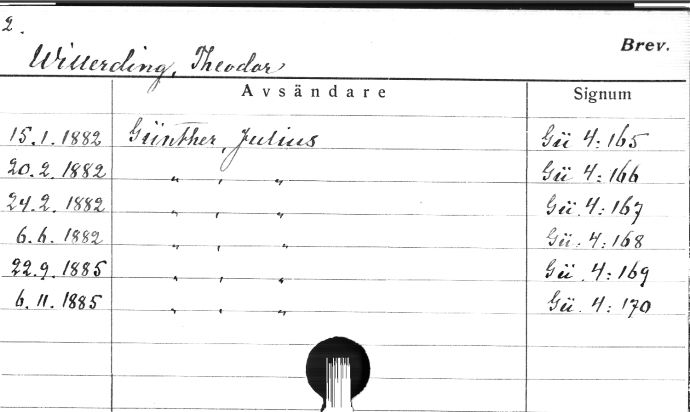 2.
Brev.
Witterding, Theodor
Avsändare Signum
15.1.1882 Günther, Julius Gü 4:165
20.2.1882 " , " Gü 4:166
24.2.1882 " , " Gü. 4:167
6.6.1882 " , " Gü. 4:168
22.9.1885 " , " Gü .4:169
6.11.1885 " , " Gü. 4:170